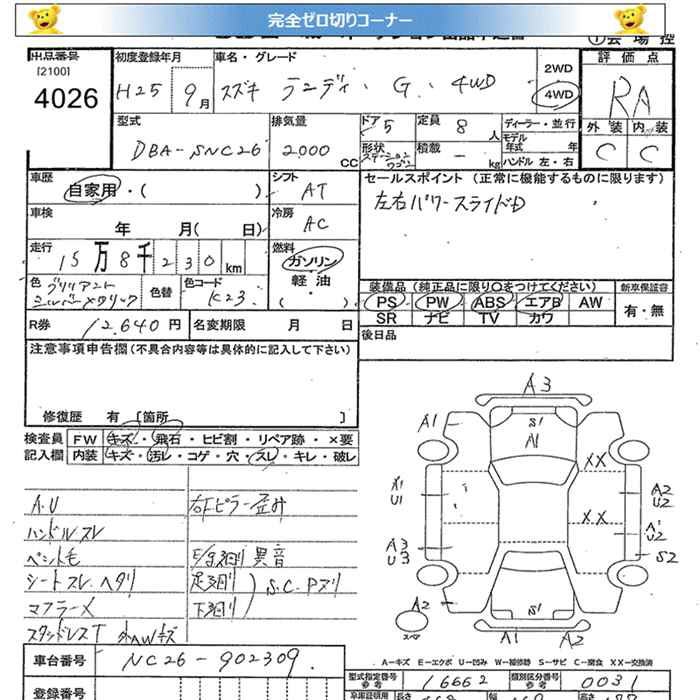 完全ゼロ切りコーナー
出品番号
[2100]
4026
初度登録年月
H25 9月
車名・グレード
スズキ ランディ G 4WD
2WD
4WD
評価点
RA
外装 内装
C C
型式
DBA-SNC26
排気量
2000 CC
ドア 5
形状
ステーションワゴン
定員 8 人
積載 - kg
ディーラー・並行
モデル年式 年
ハンドル 左・右
車歴
自家用・( )
シフト
AT
セールスポイント (正常に機能するものに限ります)
左右パワースライドD
車検
年 月( 日)
冷房
AC
走行
15万8千230km
燃料
ガソリン
軽油
( )
色 ブリリアントシルバーメタリック
色替
色コード
K23
装備品(純正品に限り○をつけてください)
PS PW ABS エアB AW
SR ナビ TV カワ
新車保証書
有・無
R券 12,640円
名変期限 月 日
後日品
注意事項申告欄(不具合内容等は具体的に記入して下さい)
修復歴 有 [箇所 ]
検査員記入欄
FW キズ・飛石・ヒビ割・リペア跡・×要
内装 キズ・汚レ・コゲ・穴・スレ・キレ・破レ
A.U
ハンドルスレ
ペット毛
シートスレ、ヘタリ
マフラーX
スタッドレスT 外AWキズ
右Fピラー歪み
E/g廻り異音
足廻り
下廻り
S.C.Pヌリ
A3
A1
S1
A1
XX
A1
U1
A2
U2
XX
A1
U2
A3
U3
S2
A2
S1
A2
スペア
A1
A2
A-キズ E-エクボ U-凹み W-補修跡 S-サビ C-腐食 XX-交換済
車台番号
NC26-902309
型式指定番号
16662
類別区分番号
0031
登録番号
長さ
幅
高さ